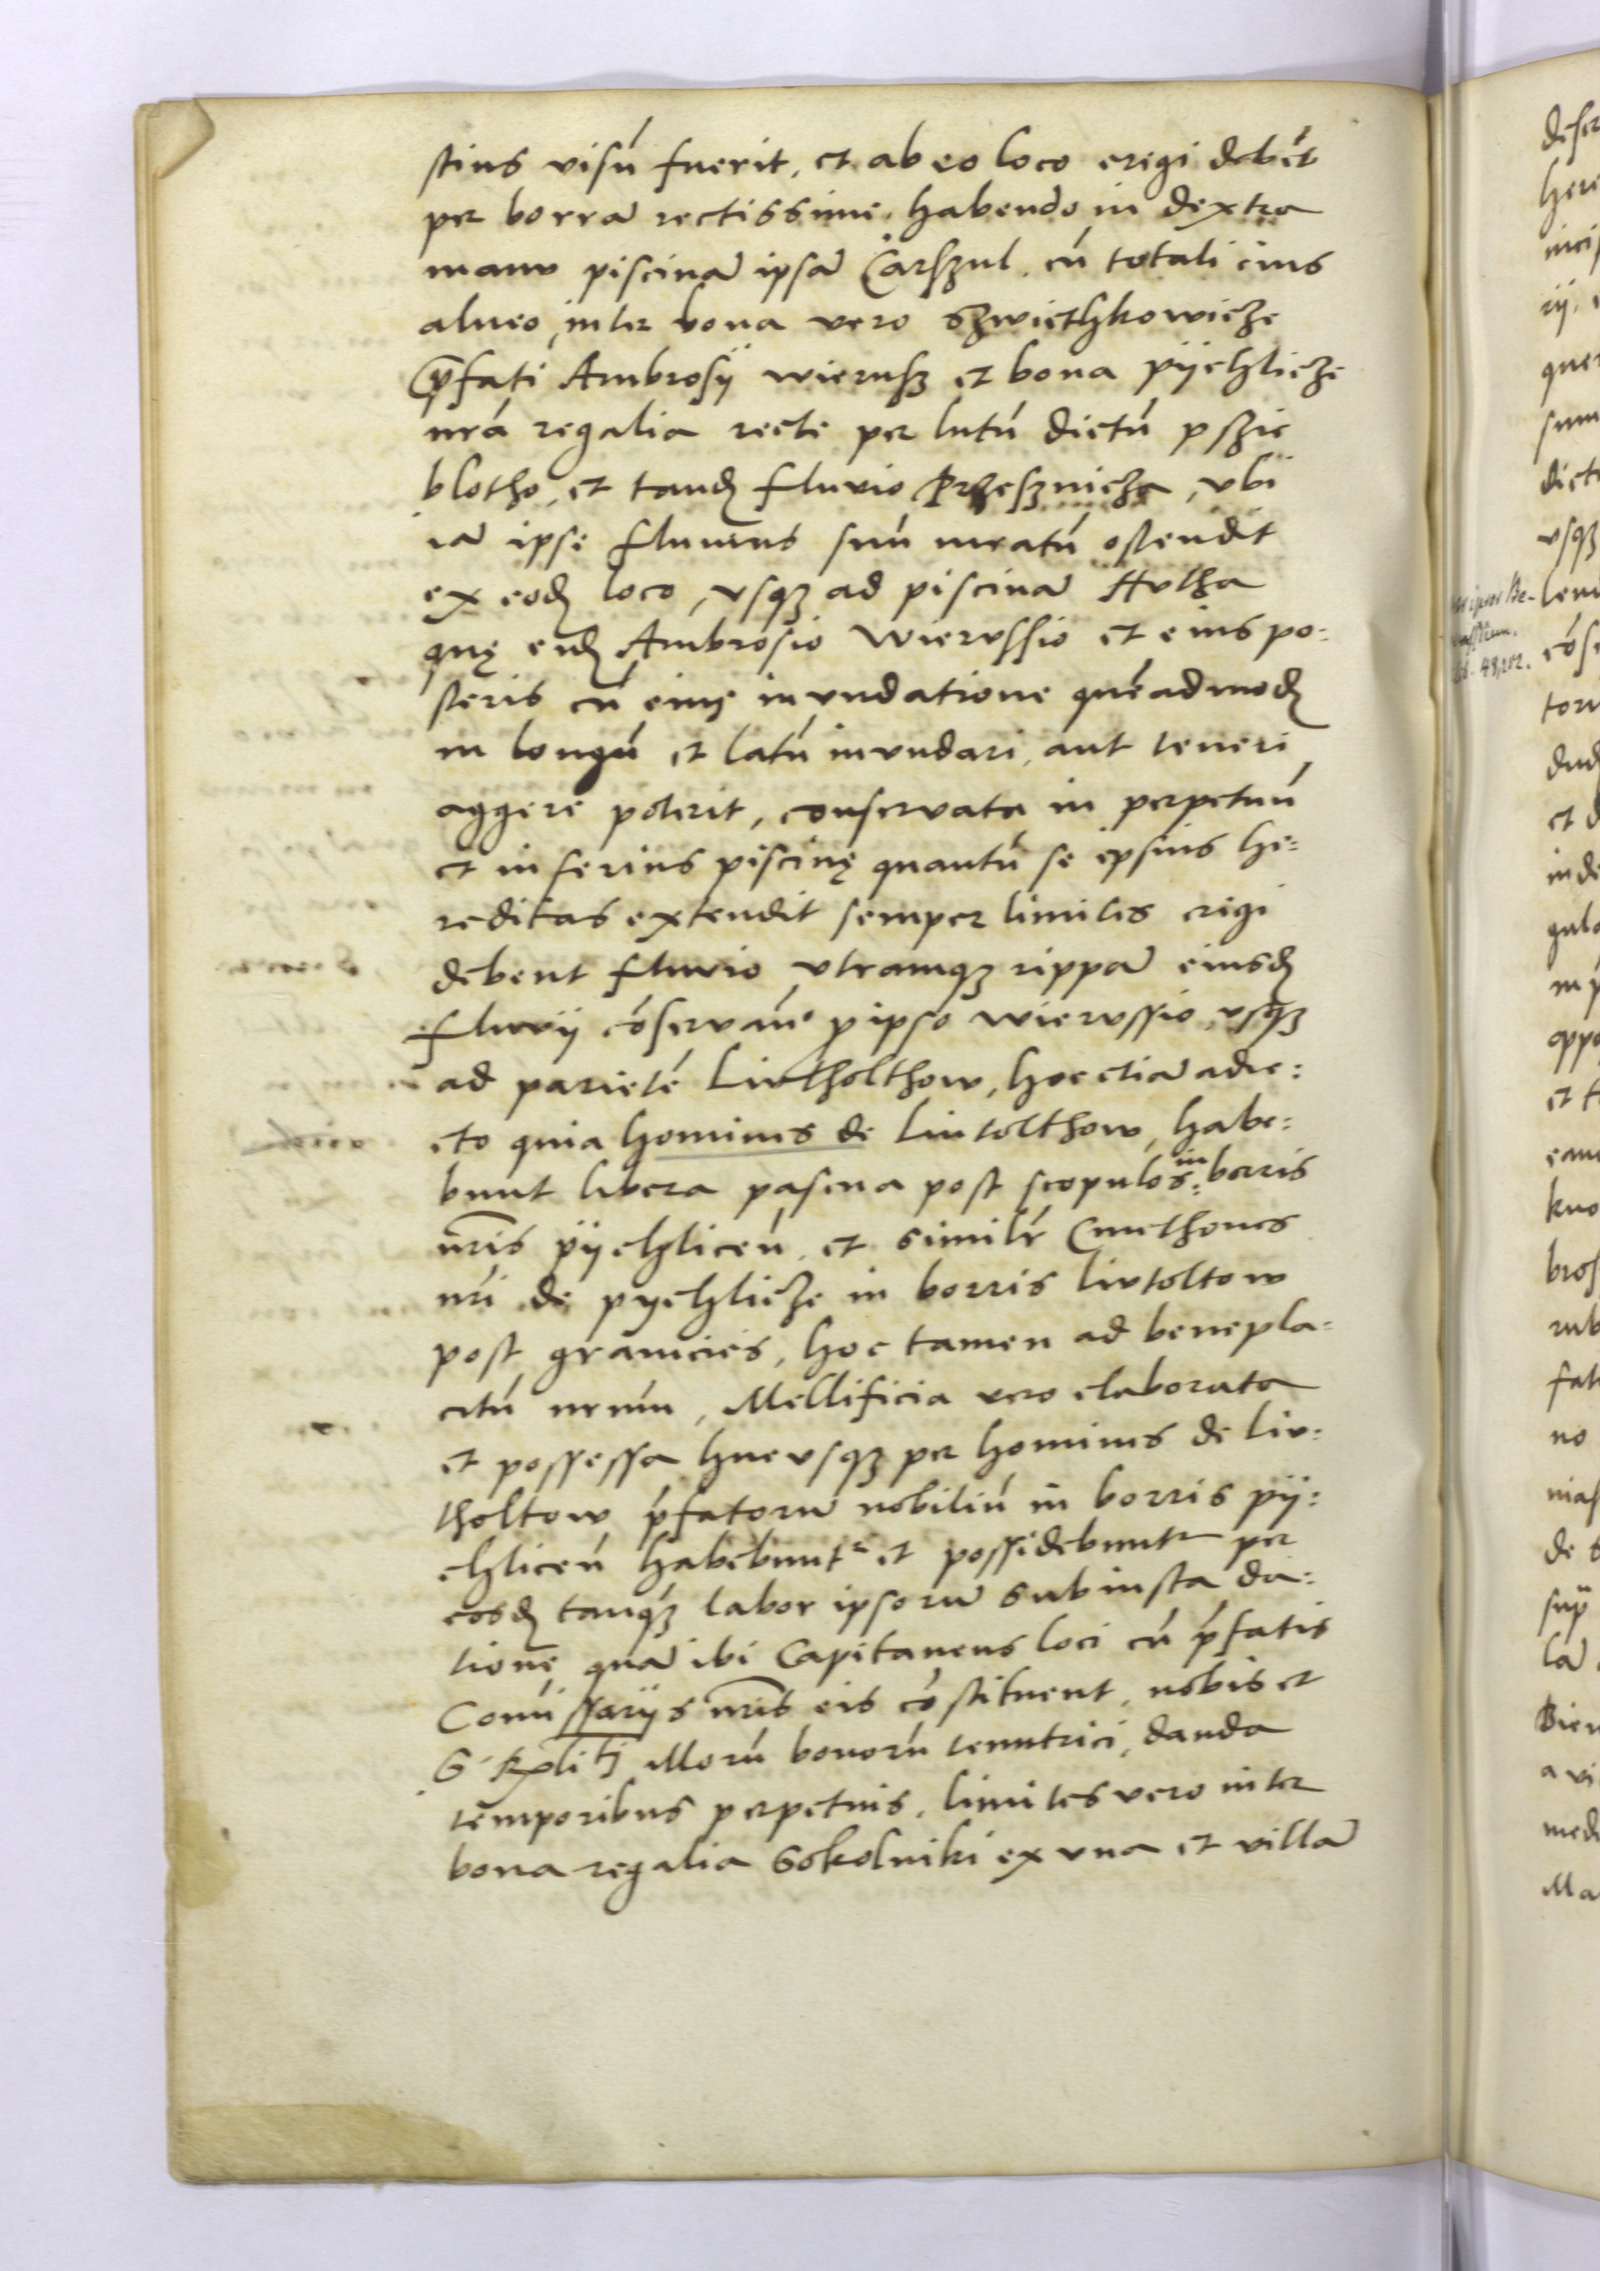 stius visū fuerit, et ab eo loco erigi debēt
per borrā rectissime, habendo in dextra
manu piscinā ipsā Carszul, cū totali eius
alueo, inter bona vero Szwiethkowicze
p̄fati Ambrosij Wierusz et bona Pÿchlicze
nr̄a regalia recte per lutū dictū pszie
blotho, et tandē fluuio Przesznicza, vbi
iā ipse fluuius suū meatū ostendit
ex eodē loco, vsq3 ad piscinā Hutha
quę eidē Ambrosio Wierussio et eius po=
steris cū eius inundatione quēadmodū
in longū et latū inundari, aut teneri
aggere poterit, conseruata in perpetuū
et inferius piscinę quantū se ipsius he=
reditas extendit semper limites erigi
debent fluuio, vtramq3 rippā eiusdē
fluuij cōseruan̄° p ipso Wierussio, vsq3
ad parietē Liutholthow, hoc etiā adie=
cto quia homines de Liutolthow, habe=
bunt libera pascua post scopulos in borris
nr̄is pÿchliceń, et similr̄ Cmethones
nr̄i de Pychlicze in borris Liutoltow
post granicies, hoc tamen ad benepla=
citū nrūm, Mellificia vero elaborata
et possessa hucvsq3 per homines de Liu=
tholtow p̄fatorū nobiliū in borris pÿ=
chliceń habebuntr et possidebuntr per
eosdē tanq̄3 labor ipsorū sub iusta da=
tione quā ibi Capitaneus loci cū p̄fatis
Com̄issarijs nr̄is eis cōstituent, nobis et
illorū bonorū tenutrici, danda
temporibus perpetuis, limites vero inter
bona regalia Sokolniki ex vna et villā